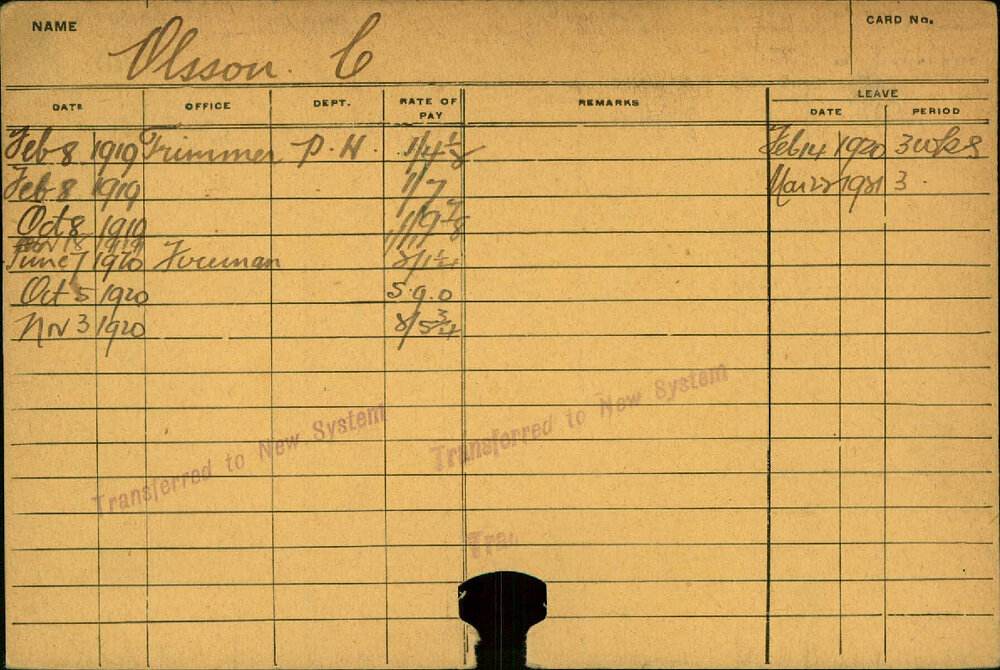 NAME
CARD No.
Olsson. C
LEAVE
DATE OFFICE DEPT. RATE OF PAY REMARKS DATE PERIOD
Feb 8 1919 Trimmer P. H. 1/4 1/8 Feb 14 1920 3 wks
Feb 8 1919 1/7 Mar 22 1921 3.
Oct 8 1919 1/9 7/8
Nov 18 1919
June 7 1920 Foreman 2/1 1/4
Oct 5 1920 5.9.0
Nov 3 1920 2/5 3/4
Transferred to New System
Transferred to New System
Tra